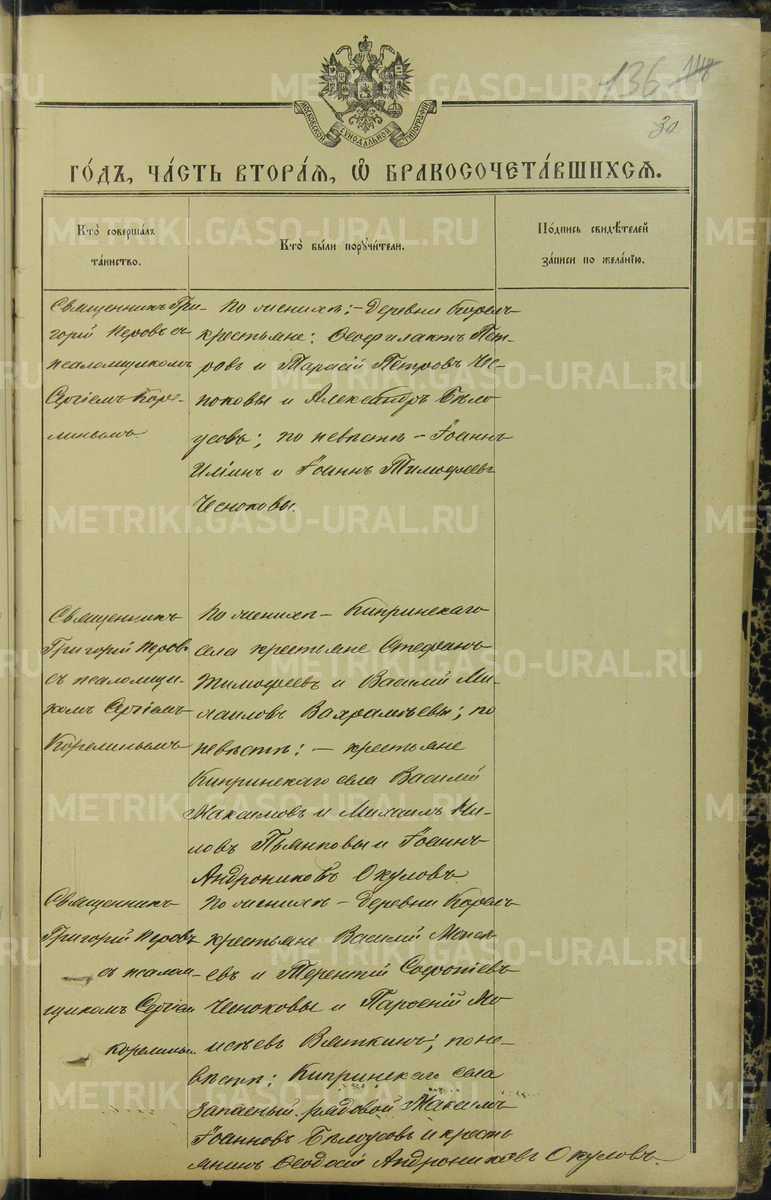 136 148
30
МОСКОВСКОЙ СѴНОДАЛЬНОЙ ТИПОГРАФІИ
ГОДЪ, ЧАСТЬ ВТОРАЯ, Ѡ БРАКОСОЧЕТАВШИХСЯ.
Кто совершалъ
таинство.
Кто были поручители.
Подпись свидѣтелей
записи по желанію.
Священникъ Гри-
горій Перовъ съ
псаломщикомъ
Сергіемъ Коре-
линымъ
По женихѣ: - Деревни Корель
крестьяне: Ѳеофилактъ Пет-
ровъ и Тарасій Петровъ Чес-
ноковы и Александръ Бѣло-
усовъ; по невѣстѣ - Іоаннъ
Иліинъ и Іоаннъ Тимофеевъ
Чесноковы.
Священникъ
Григорій Перовъ
съ псаломщи-
комъ Сергіемъ
Корелинымъ
По женихѣ - Кипринскаго
села крестьяне Стефанъ
Тимофеевъ и Василій Ми-
хаиловъ Вахрамѣевы; по
невѣстѣ: - крестьяне
Кипринскаго села Василій
Максимовъ и Михаилъ Ни-
ловъ Пьянковы и Іоаннъ
Андрониковъ Окуловъ.
Священникъ
Григорій Перовъ
съ псалом-
щикомъ Сергіем
Корелины
По женихѣ - Деревни Корель
крестьяне Василій Моисе-
евъ и Терентій Софоніевъ
Чесноковы и Парѳеній Мо-
исеевъ Вяткинъ; по не-
вѣстѣ: Кипринскаго села
запасный рядовой Максимъ
Іоанновъ Бѣлоусовъ и кресть
янинъ Ѳеодосій Андрониковъ Окуловъ.
METRIKI.GASO-URAL.RU